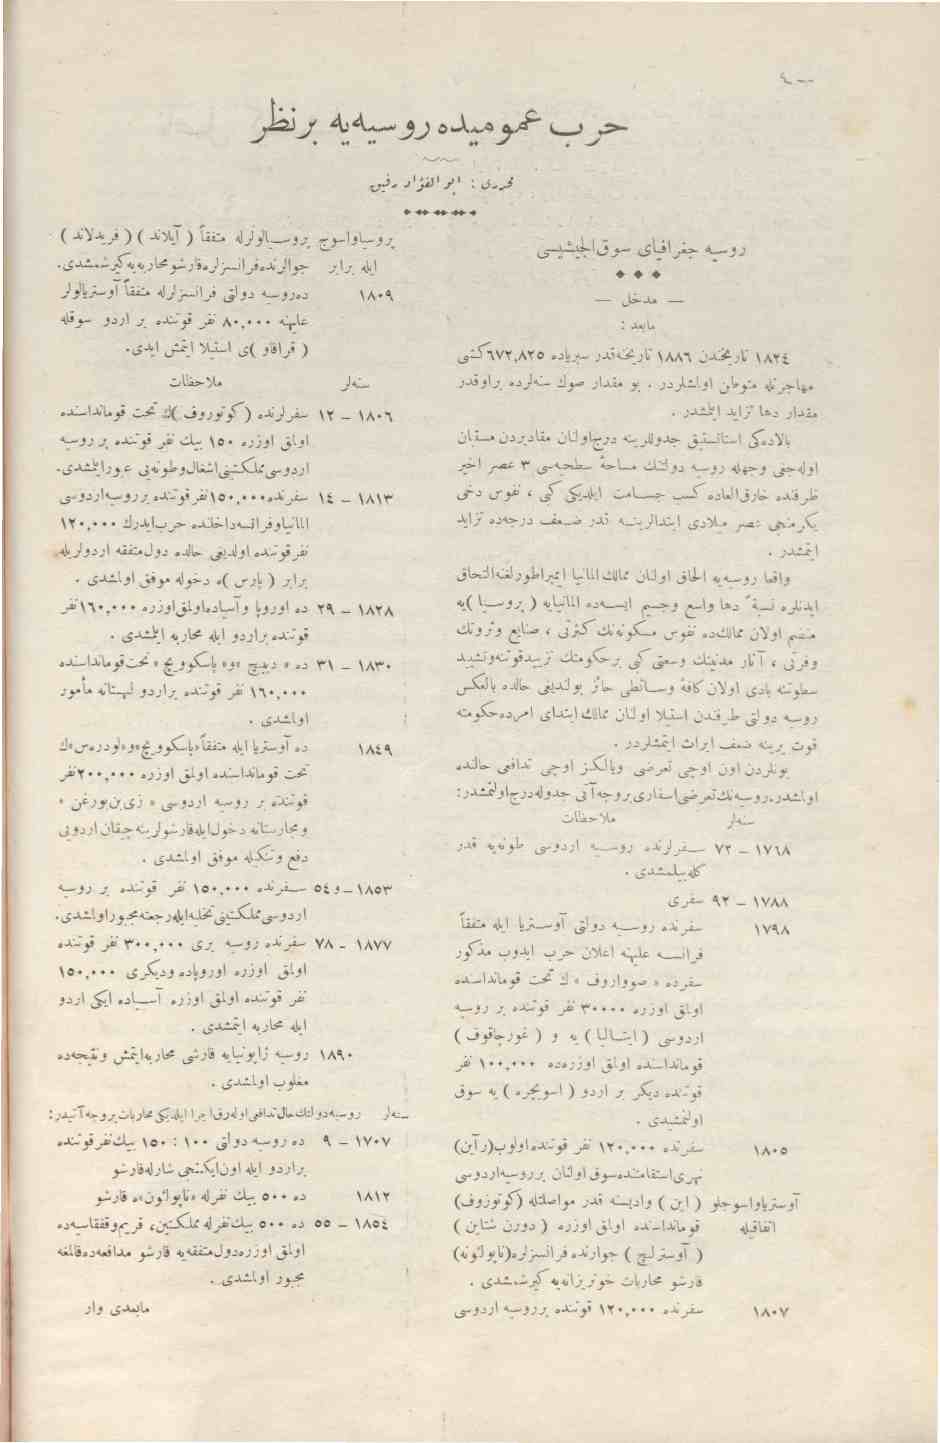 ٤ —
حرب عمومیده روسیه‌یه بر نظر
محرری : ابو الفؤاد رفیق
روسیه جغرافیای سوق‌الجیشیسی
— مدخل —
مابعد :
١٨٢٤ تاریخندن ١٨٨٦ تاریخنه‌قدر سبریاده ٦٧٢,٨٢٥ کشی
مهاجرتله متوطن اولمشلردر . بو مقدار صوك سنه‌لرده براوقدر
مقدار دها تزاید ایتمشدر .
بالاده‌کی استاتستیق جدوللرینه درج‌اولنان مقادیردن مستبان
اوله‌جغی وجهله روسیه دولتنك مساحهٔ سطحیه‌سی ٣ عصر اخیر
ظرفنده خارق‌العاده کسب جسامت ایلدیکی کبی ، نفوس دخی
یکرمنجی عصر میلادی ابتدالرینه قدر ضعف درجه‌ده تزاید
ایتمشدر .
واقعا روسیه‌یه الحاق اولنان ممالك المانیا ایمپراطورلغنه‌التحاق
ایدنلره نسبةً دها واسع وجسیم ایسه‌ده المانیایه ( پروسیا ) یه
منضم اولان ممالکده نفوس مسکونه‌نك کثرتی ، صنایع وثروتك
وفرتی ، آثار مدنیتك وسعتی کبی برحکومتك تزییدقوتنه‌وتشیید
سطوتنه بادی اولان کافهٔ وسائطی حائز بولندیغی حالده بالعکس
روسیه دولتی طرفندن استیلا اولنان ممالك ابتدای امرده‌حکومته
قوت یرینه ضعف ایراث ایتمشلردر .
بونلردن اون اوچی تعرضی ویالکز اوچی تدافعی حالنده
اولمشدر.روسیه‌نك‌تعرضی‌اسفاری‌بروجه‌آتی جدوله‌درج‌اولنمشدر:
سنه‌لر ملاحظات
١٧٦٨ – ٧٢ سفرلرنده روسیه اردوسی طونه‌یه قدر
کله‌بیلمشدی .
١٧٨٨ – ٩٢ سفری
١٧٩٨ سفرنده روسیه دولتی آوستریا ایله متفقاً
فرانسه علیهنه اعلان حرب ایدوب مذکور
سفرده « صوواروف » ك تحت قومانداسنده
اولمق اوزره ٣٠٠٠٠ نفر قوتنده بر روسیه
اردوسی ( ایتالیا ) یه و ( غورچاقوف )
قومانداسنده اولمق اوزره‌ده ١٠٠,٠٠٠ نفر
قوتنده دیکر بر اردو ( اسویچره ) یه سوق
اولنمشیدی .
١٨٠٥ سفرنده ١٢٠,٠٠٠ نفر قوتنده‌اولوب(رآین)
نهری‌استقامتنده‌سوق اولنان برروسیه‌اردوسی
آوستریاواسوجلو ( این ) وادیسنه قدر مواصلتله (کوتوزوف)
اتفاقیله قومانداسنده اولمق اوزره ( دورن شتاین )
( آوسترلیچ ) جوارنده فرانسزلره(ناپولئونه)
قارشو محاربات خونریزانه‌یه کیرشمشدی .
١٨٠٧ سفرنده ١٢٠,٠٠٠ قوتنده برروسیه اردوسی
پروسیاواسوج پروسیالولرله متفقاً ( آیلاند ) ( فریدلاند )
ایله برابر جوالرنده‌فرانسزلره‌قارشو محاربه‌یه‌کیرشمشدی.
١٨٠٩ ده‌روسیه دولتی فرانسزلرله متفقاً آوستریالولر
علیهنه ٨٠,٠٠٠ نفر قوتنده بر اردو سوقله
( قراقاو )ی استیلا ایتمش ایدی.
سنه‌لر ملاحظات
١٨٠٦ – ١٢ سفرلرنده (کوتوزوف)ك تحت قومانداسنده
اولمق اوزره ١٥٠ بیك نفر قوتنده بر روسیه
اردوسی مملکتینی‌اشغال‌وطونه‌یی عبورایتمشدی.
١٨١٣ – ١٤ سفرنده‌١٥٠,٠٠٠نفرقوتنده برروسیه‌اردوسی
المانیاوفرانسه‌داخلنده حرب‌ایدرك ١٢٠,٠٠٠
نفرقوتنده اولدیغی حالده دول‌متفقه اردولریله
برابر ( پارس )ه دخوله موفق اولمشدی .
١٨٢٨ – ٢٩ ده اوروپا وآسیاده‌اولمق‌اوزره ١٦٠,٠٠٠نفر
قوتنده براردو ایله محاربه ایتمشدی .
١٨٣٠ – ٣١ ده « دیبیچ »و« پاسکوویچ »تحت‌قومانداسنده
١٦٠,٠٠٠ نفر قوتنده براردو لهستانه مأمور
اولمشدی .
١٨٤٩ ده آوستریا ایله متفقاً«پاسکوویچ»و«لودرس»ك
تحت قومانداسنده اولمق اوزره ٢٠٠,٠٠٠نفر
قوتنده بر روسیه اردوسی « زی‌بن‌بورغن »
ومجارستانه دخول‌ایله‌قارشولرینه‌چیقان‌اردویی
دفع وتنکیله موفق اولمشدی .
١٨٥٣–و٥٤ سفرنده ١٥٠,٠٠٠ نفر قوتنده بر روسیه
اردوسی مملکتینی‌تخلیه‌ایله‌رجعته‌مجبوراولمشدی.
١٨٧٧ – ٧٨ سفرنده روسیه بری ٣٠٠,٠٠٠ نفر قوتنده
اولمق اوزره اوروپاده ودیکری ١٥٠,٠٠٠
نفر قوتنده اولمق اوزره آسیاده ایکی اردو
ایله محاربه ایتمشدی .
١٨٩٠ روسیه ژاپونیایه قارشی محاربه‌ایتمش ونتیجه‌ده
مغلوب اولمشدی .
سنه‌لر روسیه‌دولتنك‌حال‌تدافعی‌اوله‌رق‌اجرا ایلدیکی محاربات‌بروجه‌آتیدر:
١٧٠٧ – ٩ ده روسیه دولتی ١٠٠ : ١٥٠ بیك‌نفرقوتنده
براردو ایله اون‌ایکنجی شارله‌قارشو
١٨١٢ ده ٥٠٠ بیك نفرله «ناپولئون»ه قارشو
١٨٥٤ – ٥٥ ده ٥٠٠ بیك‌نفرله مملکتین، قریم‌وقفقاسیه‌ده
اولمق اوزره‌دول‌متفقه‌یه قارشو مدافعه‌ده‌قالمغه
مجبور اولمشدی .
مابعدی وار